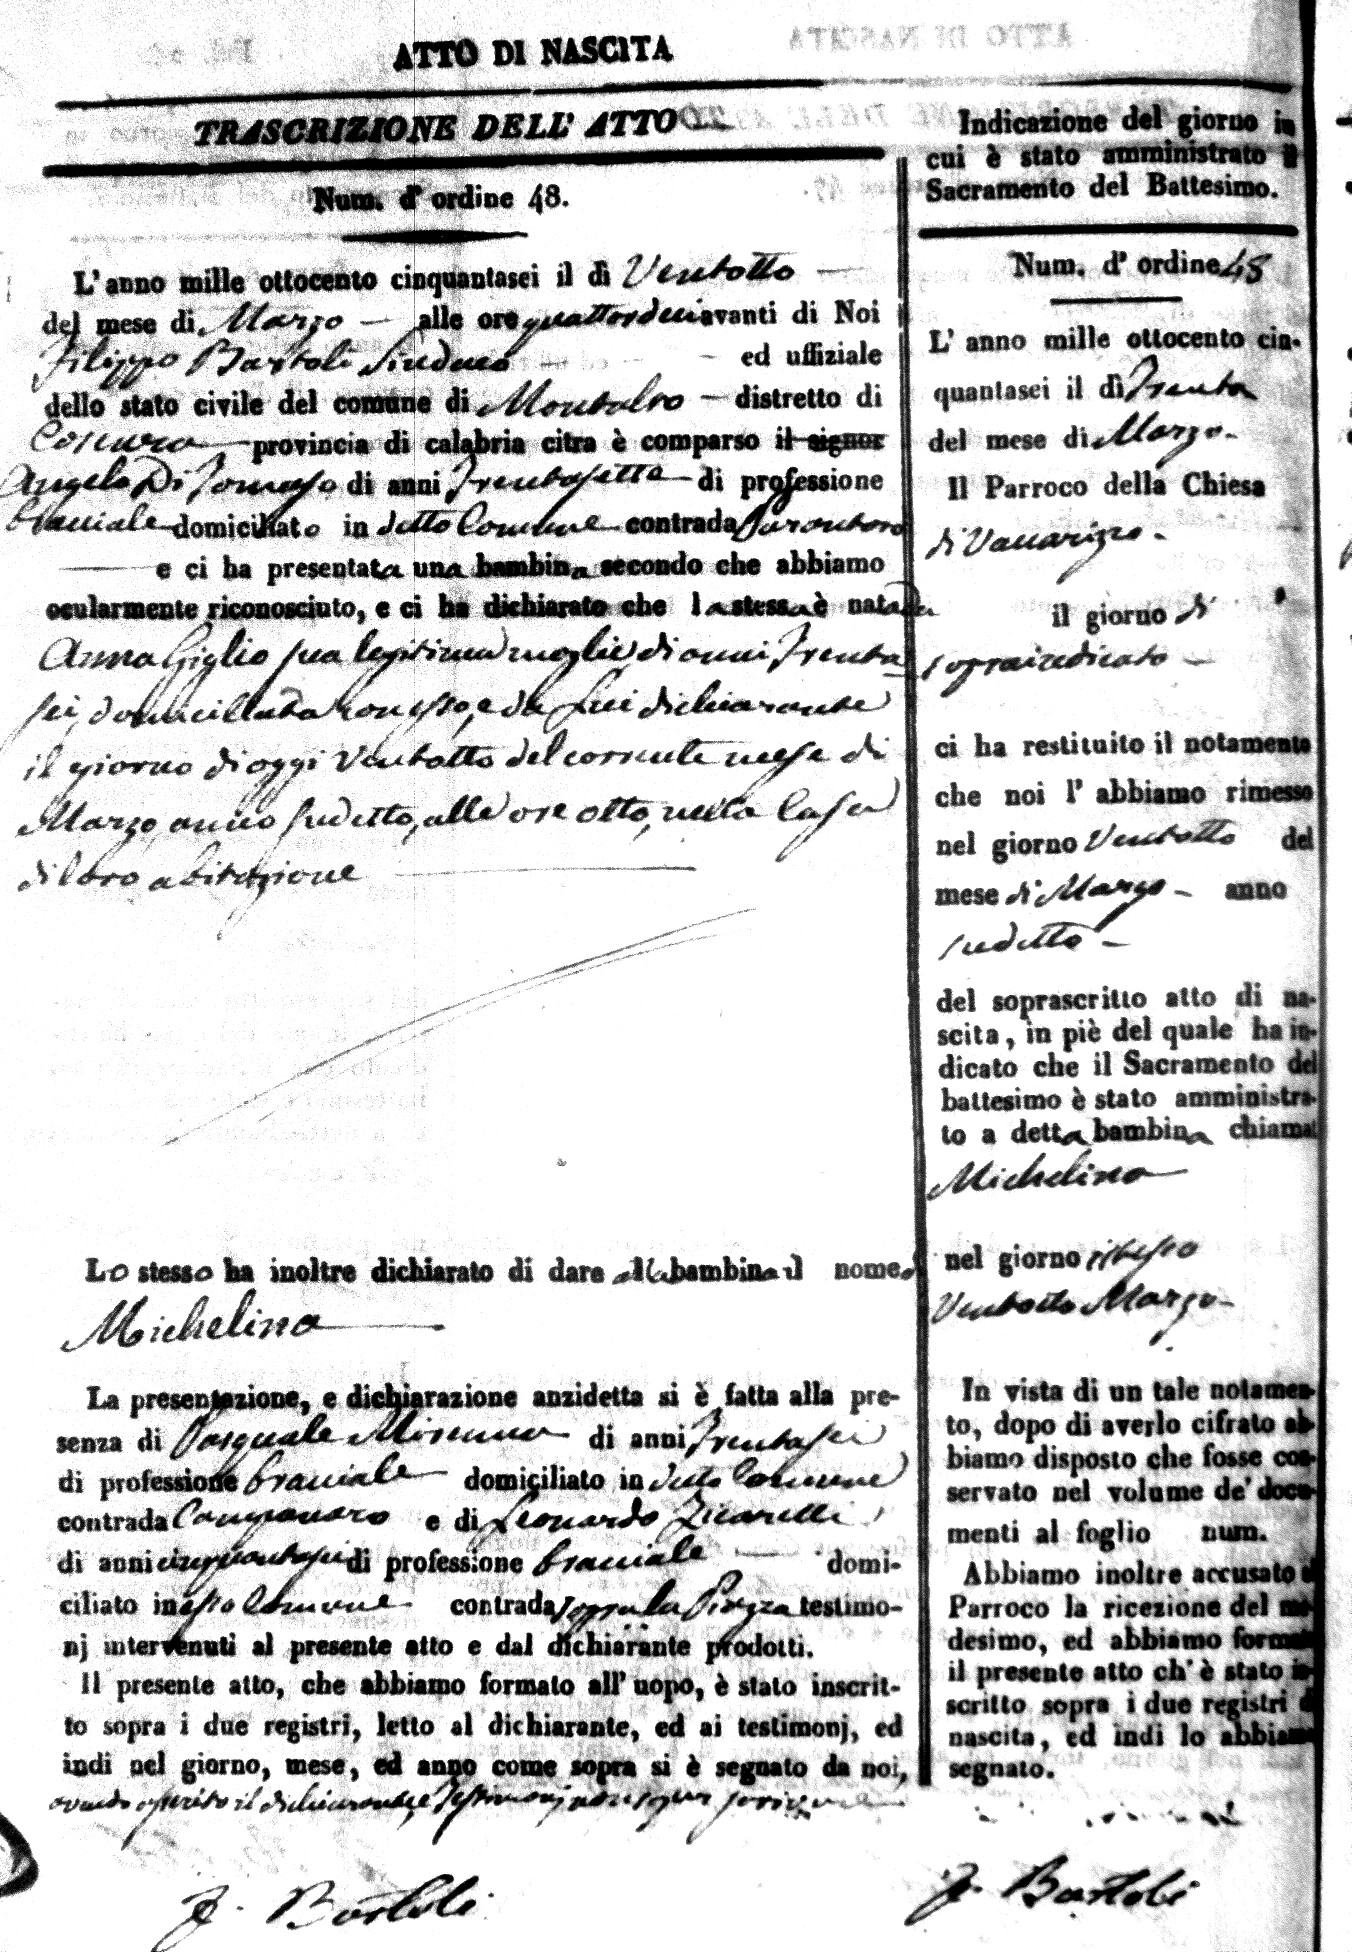 ATTO DI NASCITA
TRASCRIZIONE DELL' ATTO
Num. d' ordine 48.
L' anno mille ottocento cinquantasei il dì Ventotto
del mese di Marzo alle ore quattordici avanti di Noi
Filippo Bartoli Sindaco ed uffiziale
dello stato civile del comune di Montalto distretto di
Cosenza provincia di calabria citra è comparso il signor
Angelo Di Tomaso di anni Trentasette di professione
bracciale domiciliato in detto Comune contrada
e ci ha presentata una bambina secondo che abbiamo
ocularmente riconosciuto, e ci ha dichiarato che la stessa è nata da
Anna Giglio sua legitima moglie di anni Trenta
sei, domiciliata con esso, e da Lui dichiarante
il giorno di oggi Ventotto del corrente mese di
Marzo, anno sudetto, alle ore otto, nella Casa
di loro abitazione
Lo stesso ha inoltre dichiarato di dare alla bambina il nome di
Michelina
La presentazione, e dichiarazione anzidetta si è fatta alla pre-
senza di Pasquale di anni Trentasei
di professione bracciale domiciliato in detto Comune
contrada Companaro e di Leonardo Zicarelli
di anni cinquantasei di professione bracciale domi-
ciliato in esso Comune contrada sopra la Piazza testimo-
nj intervenuti al presente atto e dal dichiarante prodotti.
Il presente atto, che abbiamo formato all' uopo, è stato inscrit-
to sopra i due registri, letto al dichiarante, ed ai testimonj, ed
indi nel giorno, mese, ed anno come sopra si è segnato da noi,
avendo asserito il dichiarante, e Testimonj non saper scrivere
F. Bartoli
Indicazione del giorno in
cui è stato amministrato il
Sacramento del Battesimo.
Num. d' ordine 48
L' anno mille ottocento cin-
quantasei il dì Trenta
del mese di Marzo
Il Parroco della Chiesa
di Vaccarizzo
il giorno di
sopraindicato
ci ha restituito il notamento
che noi l' abbiamo rimesso
nel giorno Ventotto del
mese di Marzo anno
sudetto
del soprascritto atto di na-
scita, in piè del quale ha in-
dicato che il Sacramento del
battesimo è stato amministra-
to a detta bambina chiamat
Michelina
nel giorno istesso
Ventotto Marzo
In vista di un tale notamen-
to, dopo di averlo cifrato ab-
biamo disposto che fosse con-
servato nel volume de' docu-
menti al foglio num.
Abbiamo inoltre accusato al
Parroco la ricezione del me-
desimo, ed abbiamo formato
il presente atto ch' è stato in-
scritto sopra i due registri di
nascita, ed indi lo abbiamo
segnato.
F. Bartoli